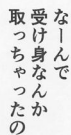 なーんで
受け身なんか
取っちゃったの